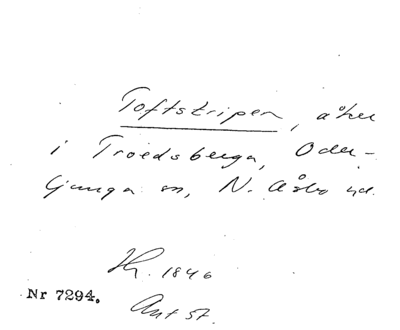 Toftstripen, åker
i Troedsberga, Oder-
ljunga sn, N. Åsbo hd.
Hr. 1846
Nr 7294.
Ant 57.